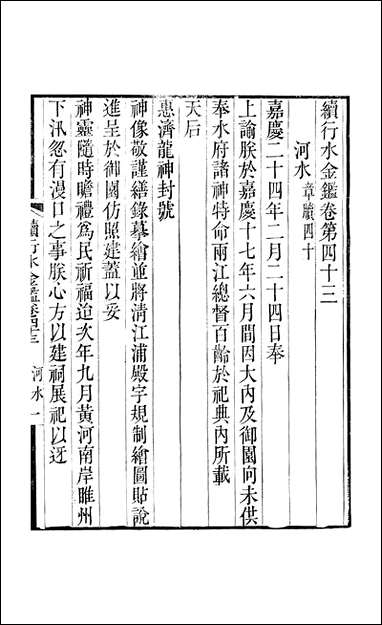 續行水金鑑卷第四十三
河水 章牘四十
嘉慶二十四年二月二十四日奉
上諭朕於嘉慶十七年六月間因大內及御園向未供
奉水府諸神特命兩江總督百齡於祀典內所載
天后
惠濟龍神封號
神像敬謹繕錄摹繪並將清江浦殿宇規制繪圖貼說
進呈於御園仿照建蓋以妥
神靈隨時瞻禮為民祈福迨次年九月黃河南岸睢州
下汛忽有漫口之事朕心方以建祠展祀以迓
續行水金鑑卷四十三 河水 一